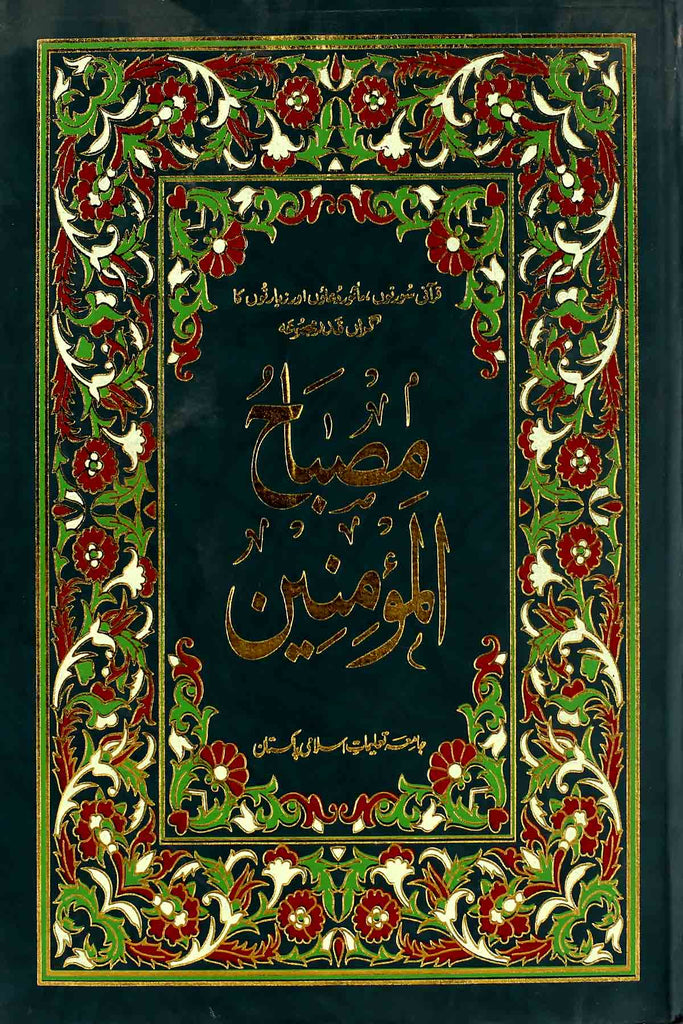 قرآنی سُورتوں، ماثور دُعاؤں اور زیارتوں کا
گراں قدر مجموعہ
مِصبَاحُ
المؤمِنِین
جامعہ تعلیماتِ اسلامی پاکستان